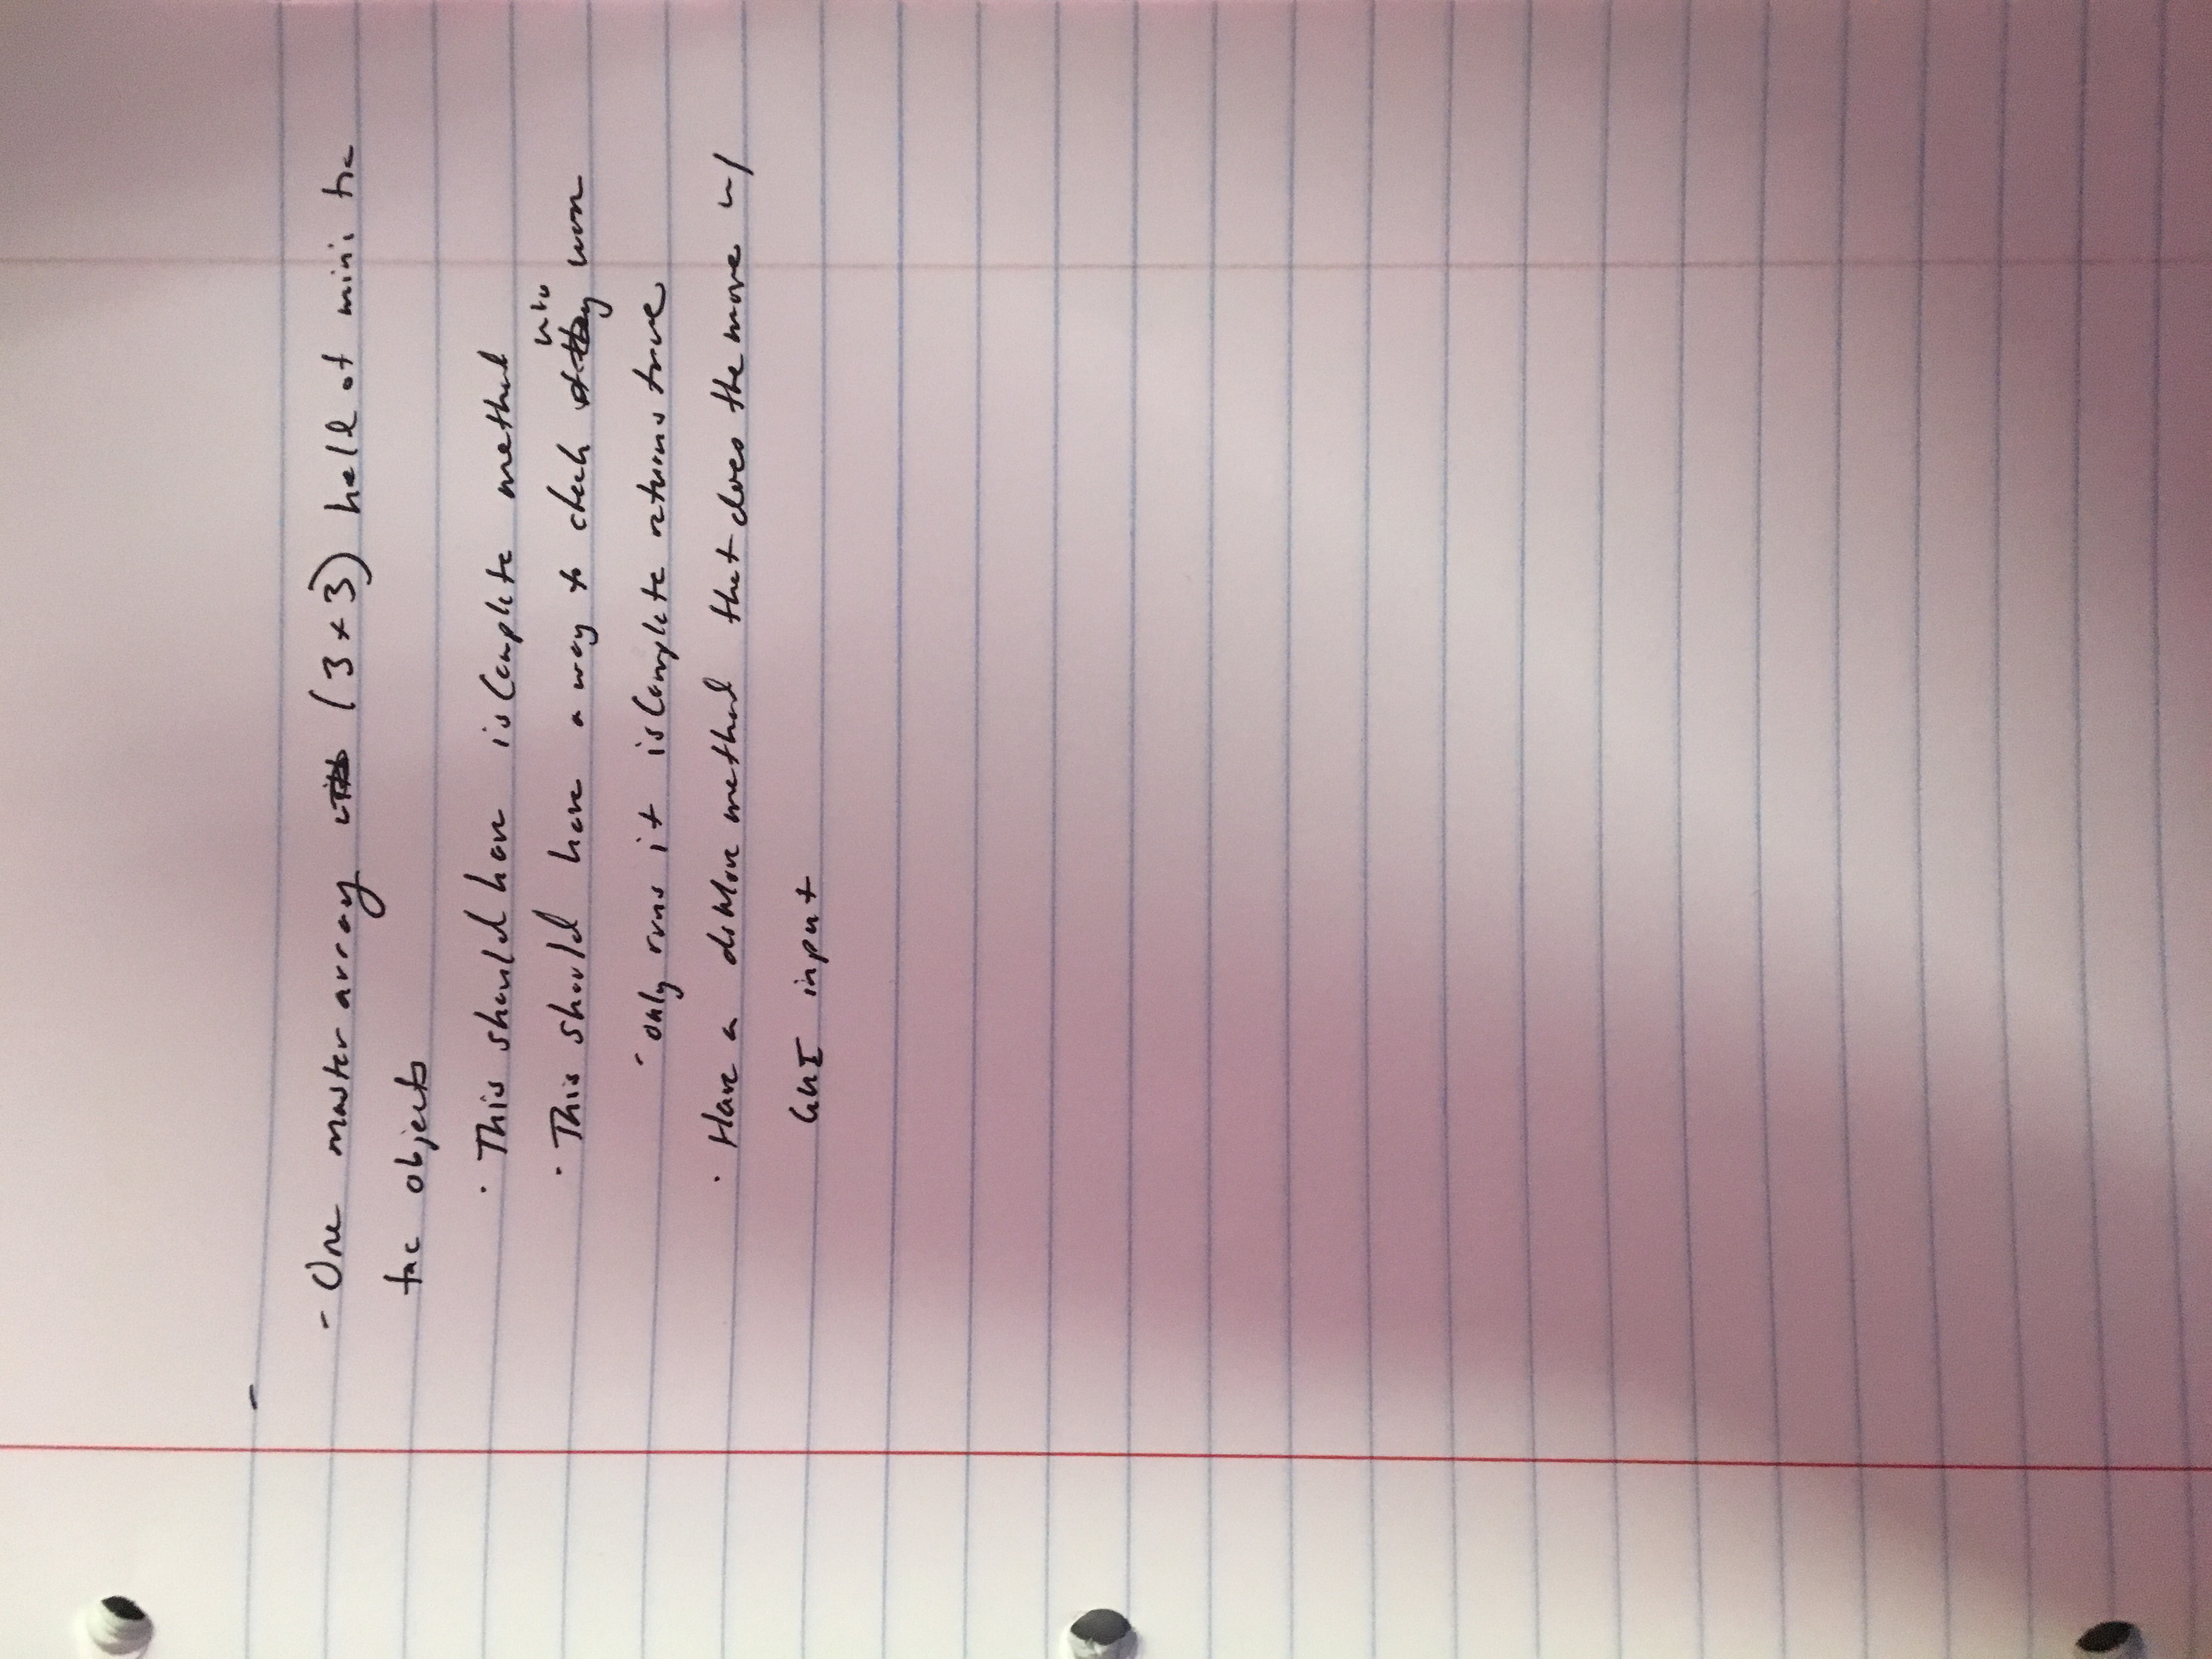 -
- One master array (3x3) held of mini tic
tac objects
· This should have isComplete method
· This should have a way to check who won
· only runs if isComplete returns true
· Have a doMove method that does the move w/
GUI input